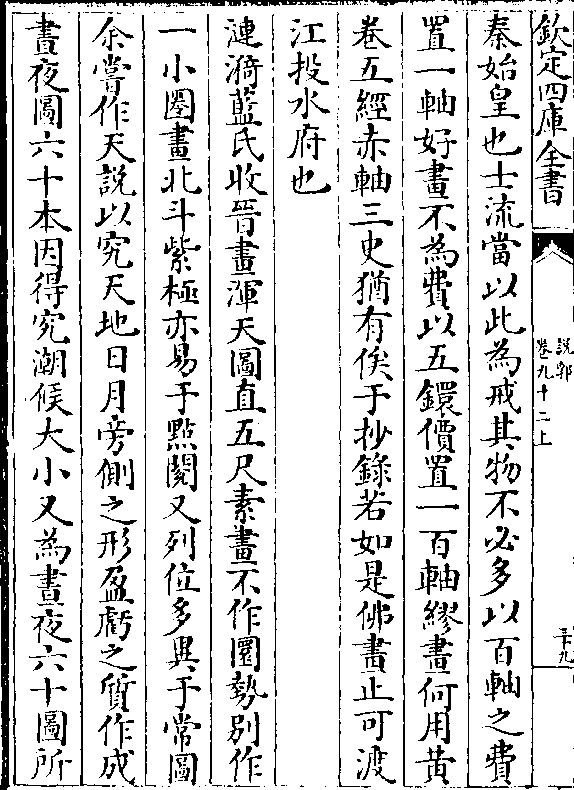 欽定四庫全書
說郛
卷九十二上
三十九
秦始皇也士流當以此為戒其物不必多以百軸之費
置一軸好畫不為費以五鐶價置一百軸繆畫何用黄
卷五經赤軸三史猶有俟于抄錄若如是佛畫止可渡
江投水府也
漣漪藍氏收晉畫渾天圖直五尺素畫不作圜勢别作
一小圈畫北斗紫極亦易于點閱又列位多異于常圖
余嘗作天説以究天地日月旁側之形盈虧之質作成
晝夜圖六十本因得究潮候大小又為晝夜六十圖所